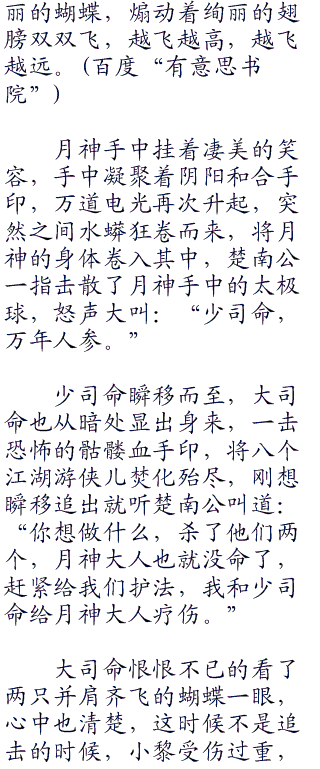 丽的蝴蝶，煽动着绚丽的翅
膀双双飞，越飞越高，越飞
越远。(百度“有意思书
院”)
月神手中挂着凄美的笑
容，手中凝聚着阴阳和合手
印，万道电光再次升起，突
然之间水蟒狂卷而来，将月
神的身体卷入其中，楚南公
一指击散了月神手中的太极
球，怒声大叫：“少司命，
万年人参。”
少司命瞬移而至，大司
命也从暗处显出身来，一击
恐怖的骷髅血手印，将八个
江湖游侠儿焚化殆尽，刚想
瞬移追出就听楚南公叫道：
“你想做什么，杀了他们两
个，月神大人也就没命了，
赶紧给我们护法，我和少司
命给月神大人疗伤。”
大司命恨恨不已的看了
两只并肩齐飞的蝴蝶一眼，
心中也清楚，这时候不是追
击的时候，小黎受伤过重，